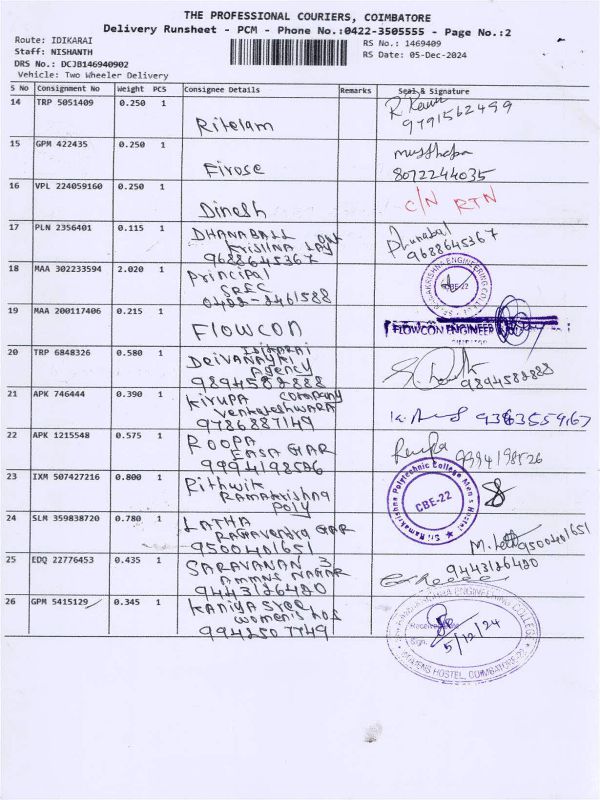 THE PROFESSIONAL COURIERS, COIMBATORE
Delivery Runsheet - PCM - Phone No.:0422-3505555 - Page No.:2
Route: IDIKARAI
Staff: NISHANTH
DRS No.: DCJB146940902
Vehicle: Two Wheeler Delivery
RS No.: 1469409
RS Date: 05-Dec-2024
S No Consignment No Weight PCS Consignee Details Remarks Seal & Signature
14 TRP 5051409 0.250 1 Ritelam 9791562499
15 GPM 422435 0.250 1 Firose musthafa 8072244035
16 VPL 224059160 0.250 1 Dinesh C/N RTN
17 PLN 2356401 0.115 1 DHANABALL
KRISHNA
9688645367
Dhunabal
9688645367
18 MAA 302233594 2.020 1 Principal
SREC
0422-2461588
CBE-22
19 MAA 200117406 0.215 1 FLOWCON
FLOWCON ENGINEER
20 TRP 6848326 0.580 1 IDIKARAI
DEIVANAYKI
Agency
9894582888
9894582888
21 APK 746444 0.390 1 KIYUPA COMPANY
VENKATESHWARA
9786887149
9363559167
22 APK 1215548 0.575 1 ROOPA
EASA GAR
9994198526
Roopa 9994198526
23 IXM 507427216 0.800 1 Rithwik
RAMAKRISHNA
Poly
Sri Ramakrishna Polytechnic College Men's Hostel
CBE-22
24 SLM 359838720 0.780 1 LATHA
RAGAVENDRA GAR
9500401651
M. 9500401651
25 EDQ 22776453 0.435 1 SARAVANAN 3
AMMAN NAGAR
9443126480
9443126480
26 GPM 5415129 0.345 1 KANIYA SREE
WOMENIS HOS
9942507749
5/12/24
WOMENS HOSTEL, COIMBATORE-22